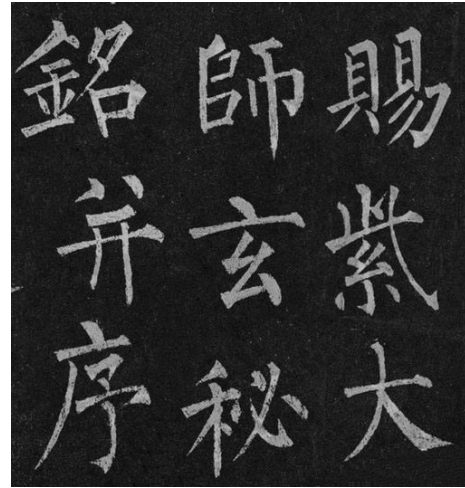 賜紫大
師玄秘
銘并序